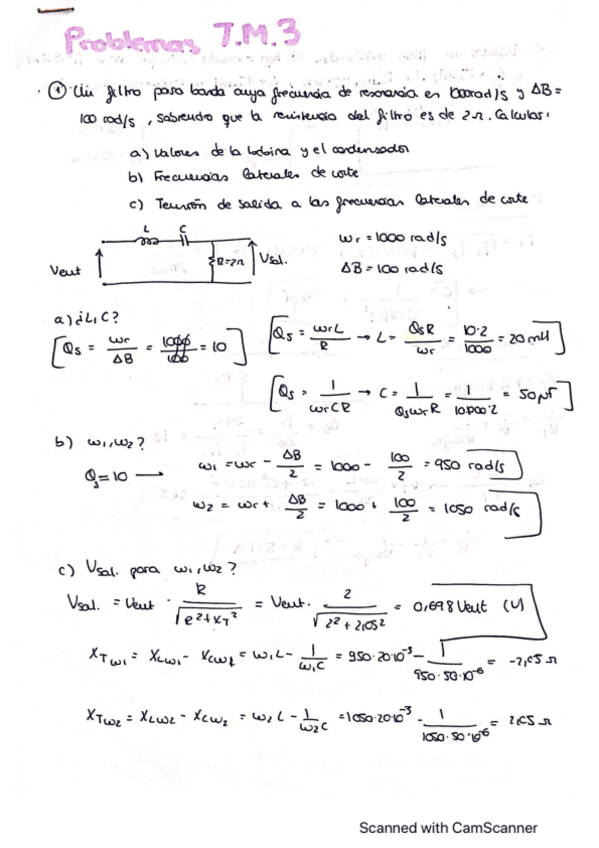 Problemas T.M.3
① Un filtro paso banda cuya frecuencia de resonancia es 1000rad/s y ΔB =
100 rad/s, sabiendo que la resistencia del filtro es de 2Ω. Calcular:
a) Valores de la bobina y el condensador
b) Frecuencias laterales de corte
c) Tensión de salida a las frecuencias laterales de corte
L C
Vent R=2Ω Vsal.
wr = 1000 rad/s
ΔB = 100 rad/s
a) ¿L,C?
[Qs = wr/ΔB = 1000/100 = 10]
[Qs = wrL/R → L = QsR/wr = 10·2/1000 = 20mH]
[Qs = 1/wrCR → C = 1/QswrR = 1/10000·2 = 50μF]
b) w1,w2?
Qs=10 →
w1 = wr - ΔB/2 = 1000 - 100/2 = 950 rad/s
w2 = wr + ΔB/2 = 1000 + 100/2 = 1050 rad/s
c) Vsal. para w1,w2?
Vsal. = Vent · R/√(R²+XT²) = Vent · 2/√(2²+2,05²) = 0,698 Vent (V)
XTw1 = XLw1 - XCw1 = w1L - 1/w1C = 950·20·10⁻³ - 1/950·50·10⁻⁶ = -2,05 Ω
XTw2 = XLw2 - XCw2 = w2L - 1/w2C = 1050·20·10⁻³ - 1/1050·50·10⁻⁶ = 2,05 Ω
Scanned with CamScanner